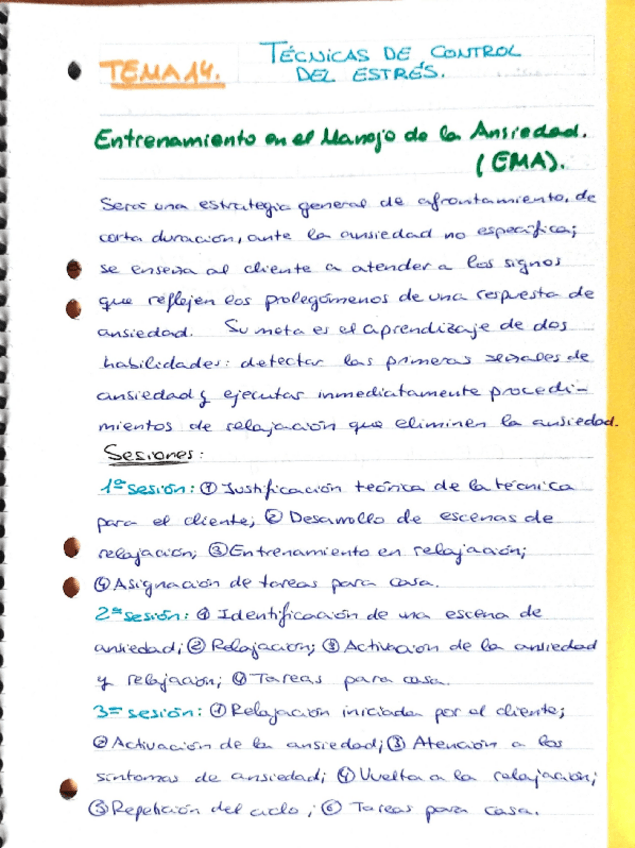 TÉCNICAS DE CONTROL
TEMA 14. DEL ESTRÉS.
Entrenamiento en el Manejo de la Ansiedad.
(EMA).
Será una estrategia general de afrontamiento, de
corta duración, ante la ansiedad no específica;
se enseña al cliente a atender a los signos
que reflejen los prolegómenos de una respuesta de
ansiedad. Su meta es el aprendizaje de dos
habilidades: detectar las primeras señales de
ansiedad y ejecutar inmediatamente procedi-
mientos de relajación que eliminen la ansiedad.
Sesiones:
1ª sesión: ① Justificación teórica de la técnica
para el cliente; ② Desarrollo de escenas de
relajación; ③ Entrenamiento en relajación;
④ Asignación de tareas para casa.
2ª sesión: ① Identificación de una escena de
ansiedad; ② Relajación; ③ Activación de la ansiedad
y relajación; ④ Tareas para casa.
3ª sesión: ① Relajación iniciada por el cliente;
② Activación de la ansiedad; ③ Atención a los
síntomas de ansiedad; ④ Vuelta a la relajación;
⑤ Repetición del ciclo; ⑥ Tareas para casa.